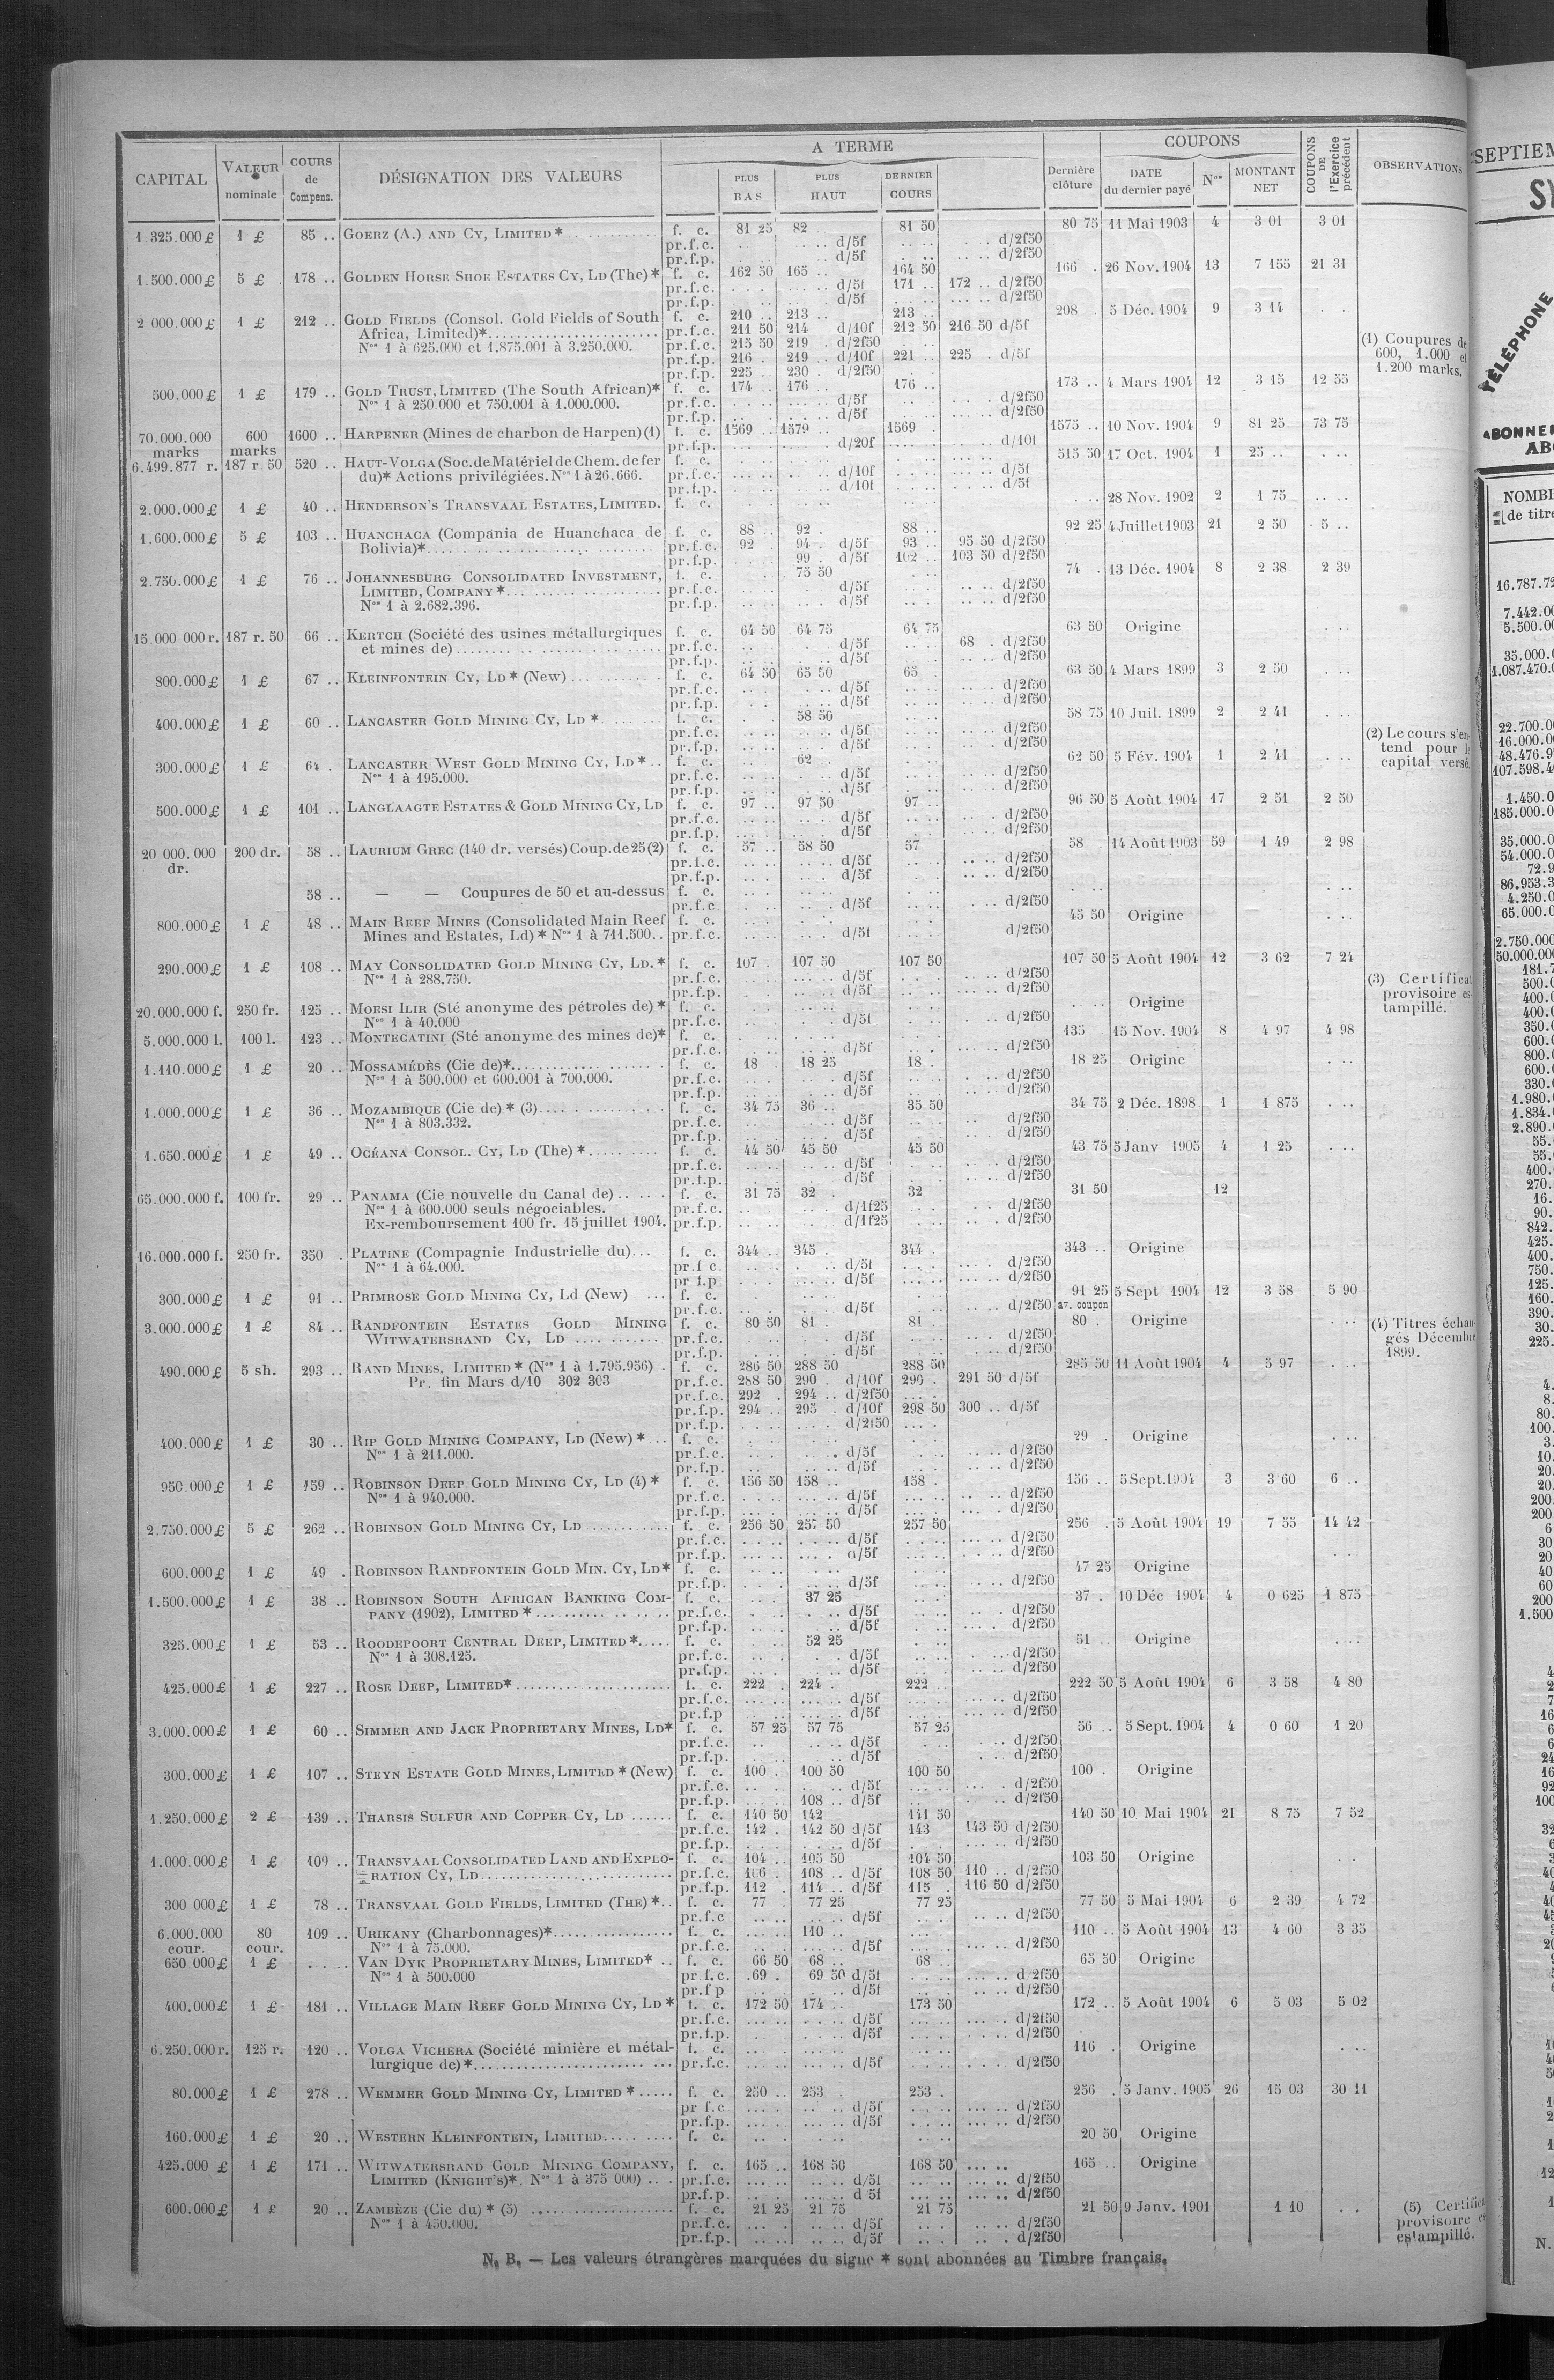 A TERME
COUPONS
CAPITAL VALEUR nominale COURS de Compens. DÉSIGNATION DES VALEURS PLUS BAS PLUS HAUT DERNIER COURS Dernière clôture DATE du dernier payé Nos MONTANT NET COUPONS DE l'Exercice précédent OBSERVATIONS
1.325.000 £ 1 £ 85 .. GOERZ (A.) AND CY, LIMITED * f. c. 81 25 82 81 50 80 75 11 Mai 1903 4 3 01 3 01
pr.f.c. d/5f d/2f50
pr.f.p. d/5f d/2f50
1.500.000 £ 5 £ 178 .. GOLDEN HORSE SHOE ESTATES CY, LD (The) * f. c. 162 50 165 .. 164 50 166 . 26 Nov. 1904 13 7 155 21 31
pr.f.c. d/5f 171 .. 172 .. d/2f50
pr.f.p. d/5f d/2f50
2 000.000 £ 1 £ 212 .. GOLD FIELDS (Consol. Gold Fields of South f. c. 210 .. 213 .. 213 .. 208 . 5 Déc. 1904 9 3 14
Africa, Limited)* pr.f.c. 211 50 214 d/10f 212 50 216 50 d/5f
Nos 1 à 625.000 et 1.875.001 à 3.250.000. pr.f.c. 215 50 219 . d/2f50
pr.f.p. 216 . 219 .. d/10f 221 .. 225 . d/5f
pr.f.p. 225 .. 230 . d/2f50
(1) Coupures de
600, 1.000 et
1.200 marks.
500.000 £ 1 £ 179 .. GOLD TRUST, LIMITED (The South African)* f. c. 174 .. 176 .. 176 .. 173 .. 4 Mars 1904 12 3 15 12 55
Nos 1 à 250.000 et 750.001 à 1.000.000. pr.f.c. d/5f d/2f50
pr.f.p. d/5f d/2f50
70.000.000 marks 600 marks 1600 .. HARPENER (Mines de charbon de Harpen) (1) f. c. 1569 .. 1579 .. 1569 . 1575 .. 10 Nov. 1904 9 81 25 73 75
pr.f.p. d/20f d/10f
6.499.877 r. 187 r 50 520 .. HAUT-VOLGA (Soc. de Matériel de Chem. de fer f. c. 515 50 17 Oct. 1904 1 25 ..
du)* Actions privilégiées. Nos 1 à 26.666. pr.f.c. d/10f d/5f
pr.f.p. d/10f d/5f
2.000.000 £ 1 £ 40 .. HENDERSON'S TRANSVAAL ESTATES, LIMITED. f. c. 28 Nov. 1902 2 1 75
1.600.000 £ 5 £ 103 .. HUANCHACA (Compania de Huanchaca de f. c. 88 . 92 . 88 .. 92 25 4 Juillet 1903 21 2 50 5 ..
Bolivia)* pr.f.c. 92 . 94 . d/5f 93 .. 95 50 d/2f50
pr.f.p. 99 . d/5f 102 .. 103 50 d/2f50
2.750.000 £ 1 £ 76 .. JOHANNESBURG CONSOLIDATED INVESTMENT, f. c. 75 50 74 . 13 Déc. 1904 8 2 38 2 39
LIMITED, COMPANY * pr.f.c. d/5f d/2f50
Nos 1 à 2.682.396. pr.f.p. d/5f d/2f50
15.000 000 r. 187 r. 50 66 .. KERTCH (Société des usines métallurgiques f. c. 64 50 64 75 64 75 63 50 Origine
et mines de) pr.f.c. d/5f 68 . d/2f50
pr.f.p. d/5f d/2f50
800.000 £ 1 £ 67 .. KLEINFONTEIN CY, LD * (New) f. c. 64 50 65 50 65 . 63 50 4 Mars 1899 3 2 50
pr.f.c. d/5f d/2f50
pr.f.p. d/5f d/2f50
400.000 £ 1 £ 60 .. LANCASTER GOLD MINING CY, LD * f. c. 58 50 58 75 10 Juil. 1899 2 2 41
pr.f.c. d/5f d/2f50
pr.f.p. d/5f d/2f50
(2) Le cours s'en-
tend pour le
capital versé.
300.000 £ 1 £ 64 . LANCASTER WEST GOLD MINING CY, LD * f. c. 62 62 50 5 Fév. 1904 1 2 41
Nos 1 à 195.000. pr.f.c. d/5f d/2f50
pr.f.p. d/5f d/2f50
500.000 £ 1 £ 101 .. LANGLAAGTE ESTATES & GOLD MINING CY, LD f. c. 97 .. 97 50 97 .. 96 50 5 Août 1904 17 2 51 2 50
pr.f.c. d/5f d/2f50
pr.f.p. d/5f d/2f50
20 000.000 dr. 200 dr. 58 .. LAURIUM GREC (140 dr. versés) Coup. de 25 (2) f. c. 57 .. 58 50 57 58 14 Août 1903 59 1 49 2 98
pr.f.c. d/5f d/2f50
pr.f.p. d/5f d/2f50
58 .. — — Coupures de 50 et au-dessus f. c.
pr.f.c. d/5f d/2f50
800.000 £ 1 £ 48 .. MAIN REEF MINES (Consolidated Main Reef f. c. 45 50 Origine
Mines and Estates, Ld) * Nos 1 à 711.500. pr.f.c. d/5f d/2f50
290.000 £ 1 £ 108 .. MAY CONSOLIDATED GOLD MINING CY, LD. * f. c. 107 . 107 50 107 50 107 50 5 Août 1904 12 3 62 7 24
Nos 1 à 288.750. pr.f.c. d/5f d/2f50
pr.f.p. d/5f d/2f50
(3) Certificat
provisoire es-
tampillé.
20.000.000 f. 250 fr. 125 .. MOESI ILIR (Sté anonyme des pétroles de) * f. c. Origine
Nos 1 à 40.000 pr.f.c. d/5f d/2f50
5.000.000 l. 100 l. 123 .. MONTECATINI (Sté anonyme des mines de)* f. c. 135 15 Nov. 1904 8 4 97 4 98
pr.f.c. d/5f d/2f50
1.110.000 £ 1 £ 20 .. MOSSAMÉDÈS (Cie de)* f. c. 18 . 18 25 18 . 18 25 Origine
Nos 1 à 500.000 et 600.001 à 700.000. pr.f.c. d/5f d/2f50
pr.f.p. d/5f d/2f50
1.000.000 £ 1 £ 36 .. MOZAMBIQUE (Cie de) * (3) f. c. 34 75 36 .. 35 50 34 75 2 Déc. 1898 1 1 875
Nos 1 à 803.332. pr.f.c. d/5f d/2f50
pr.f.p. d/5f d/2f50
1.650.000 £ 1 £ 49 .. OCÉANA CONSOL. CY, LD (The) * f. c. 44 50 45 50 45 50 43 75 5 Janv 1905 4 1 25
pr.f.c. d/5f d/2f50
pr.f.p. d/5f d/2f50
65.000.000 f. 100 fr. 29 .. PANAMA (Cie nouvelle du Canal de) f. c. 31 75 32 . 32 31 50 12
Nos 1 à 600.000 seuls négociables. pr.f.c. d/1f25 d/2f50
Ex-remboursement 100 fr. 15 juillet 1904. pr.f.p. d/1f25 d/2f50
16.000.000 f. 250 fr. 350 . PLATINE (Compagnie Industrielle du) f. c. 344 .. 345 . 344 . 343 .. Origine
Nos 1 à 64.000. pr.f.c. d/5f d/2f50
pr.f.p. d/5f d/2f50
300.000 £ 1 £ 91 .. PRIMROSE GOLD MINING CY, Ld (New) f. c. 91 25 5 Sept 1904 12 3 58 5 90
pr.f.c. d/5f d/2f50 av. coupon
3.000.000 £ 1 £ 84 .. RANDFONTEIN ESTATES GOLD MINING f. c. 80 50 81 . 81 . 80 . Origine
WITWATERSRAND CY, LD pr.f.c. d/5f d/2f50
pr.f.p. d/5f d/2f50
(4) Titres échan-
gés Décembre
1899.
490.000 £ 5 sh. 293 .. RAND MINES, LIMITED * (Nos 1 à 1.795.956) f. c. 286 50 288 50 288 50 285 50 11 Août 1904 4 5 97
Pr. fin Mars d/10 302 303 pr.f.c. 288 50 290 . d/10f 290 . 291 50 d/5f
pr.f.c. 292 . 294 .. d/2f50
pr.f.p. 294 .. 295 . d/10f 298 50 300 .. d/5f
pr.f.p. d/2f50
400.000 £ 1 £ 30 .. RIP GOLD MINING COMPANY, LD (New) * f. c. 29 . Origine
Nos 1 à 211.000. pr.f.c. d/5f d/2f50
pr.f.p. d/5f d/2f50
950.000 £ 1 £ 159 .. ROBINSON DEEP GOLD MINING CY, LD (4) * f. c. 156 50 158 .. 158 . 156 .. 5 Sept. 1904 3 3 60 6 ..
Nos 1 à 940.000. pr.f.c. d/5f d/2f50
pr.f.p. d/5f d/2f50
2.750.000 £ 5 £ 262 .. ROBINSON GOLD MINING CY, LD f. c. 256 50 257 50 257 50 256 . 5 Août 1904 19 7 55 14 42
pr.f.c. d/5f d/2f50
pr.f.p. d/5f d/2f50
600.000 £ 1 £ 49 . ROBINSON RANDFONTEIN GOLD MIN. CY, LD* f. c. 47 25 Origine
pr.f.p. d/5f d/2f50
1.500.000 £ 1 £ 38 .. ROBINSON SOUTH AFRICAN BANKING COM- f. c. 37 25 37 . 10 Déc 1904 4 0 625 1 875
PANY (1902), LIMITED * pr.f.c. d/5f d/2f50
pr.f.p. d/5f d/2f50
325.000 £ 1 £ 53 .. ROODEPOORT CENTRAL DEEP, LIMITED * f. c. 52 25 51 .. Origine
Nos 1 à 308.125. pr.f.c. d/5f d/2f50
pr.f.p. d/5f d/2f50
425.000 £ 1 £ 227 .. ROSE DEEP, LIMITED* f. c. 222 .. 224 . 222 .. 222 50 5 Août 1904 6 3 58 4 80
pr.f.c. d/5f d/2f50
pr.f.p d/5f d/2f50
3.000.000 £ 1 £ 60 .. SIMMER AND JACK PROPRIETARY MINES, LD* f. c. 57 25 57 75 57 25 56 .. 5 Sept. 1904 4 0 60 1 20
pr.f.c. d/5f d/2f50
pr.f.p. d/5f d/2f50
300.000 £ 1 £ 107 .. STEYN ESTATE GOLD MINES, LIMITED * (New) f. c. 100 . 100 50 100 50 100 . Origine
pr.f.c. d/5f d/2f50
pr.f.p. 108 .. d/5f d/2f50
1.250.000 £ 2 £ 139 .. THARSIS SULFUR AND COPPER CY, LD f. c. 140 50 142 141 50 140 50 10 Mai 1904 21 8 75 7 52
pr.f.c. 142 . 142 50 d/5f 143 143 50 d/2f50
pr.f.p. d/5f d/2f50
1.000.000 £ 1 £ 109 .. TRANSVAAL CONSOLIDATED LAND AND EXPLO- f. c. 104 .. 105 50 104 50 103 50 Origine
RATION CY, LD pr.f.c. 106 . 108 .. d/5f 108 50 110 .. d/2f50
pr.f.p. 112 . 114 .. d/5f 115 . 116 50 d/2f50
300 000 £ 1 £ 78 .. TRANSVAAL GOLD FIELDS, LIMITED (THE) * f. c. 77 . 77 25 77 25 77 50 5 Mai 1904 6 2 39 4 72
pr.f.c d/5f d/2f50
6.000.000 cour. 80 cour. 109 .. URIKANY (Charbonnages)* f. c. 110 .. 110 .. 5 Août 1904 13 4 60 3 35
Nos 1 à 75.000. pr.f.c. d/5f d/2f50
650 000 £ 1 £ .... VAN DYK PROPRIETARY MINES, LIMITED* f. c. 66 50 68 .. 68 .. 65 50 Origine
Nos 1 à 500.000 pr f.c. 69 . 69 50 d/5f d/2f50
pr.f p d/5f d/2f50
400.000 £ 1 £ 181 .. VILLAGE MAIN REEF GOLD MINING CY, LD * f. c. 172 50 174 .. 173 50 172 .. 5 Août 1904 6 5 03 5 02
pr.f.c. d/5f d/2f50
pr.f.p. d/5f d/2f50
6.250.000 r. 125 r. 120 .. VOLGA VICHERA (Société minière et métal- f. c. 116 . Origine
lurgique de) * pr.f.c. d/5f d/2f50
80.000 £ 1 £ 278 .. WEMMER GOLD MINING CY, LIMITED * f. c. 250 .. 253 . 253 . 256 . 5 Janv. 1905 26 15 03 30 11
pr f.c d/5f d/2f50
pr.f.p. d/5f d/2f50
160.000 £ 1 £ 20 .. WESTERN KLEINFONTEIN, LIMITED f. c. 20 50 Origine
425.000 £ 1 £ 171 .. WITWATERSRAND GOLD MINING COMPANY, f. c. 165 .. 168 50 168 50 165 .. Origine
LIMITED (KNIGHT'S)*. Nos 1 à 375 000) pr.f.c. d/5f d/2f50
pr.f.p. d 5f d/2f50
600.000 £ 1 £ 20 .. ZAMBÈZE (Cie du) * (5) f. c. 21 25 21 75 21 75 21 50 9 Janv. 1901 1 10
Nos 1 à 450.000. pr.f.c. d/5f d/2f50
pr.f.p. d/5f d/2f50
(5) Certific
provisoire es
estampillé.
N. B. — Les valeurs étrangères marquées du signe * sont abonnées au Timbre français.
SEPTIEM
TÉLÉPHONE
ABONNE
AB
NOMB
de titre
16.787.7
7.442.0
5.500.0
35.000.
1.087.470.
22.700.0
16.000.0
48.476.9
107.598.4
1.450.0
185.000.0
35.000.0
54.000.0
72.9
86.953.3
4.250.0
65.000.0
2.750.000
50.000.000